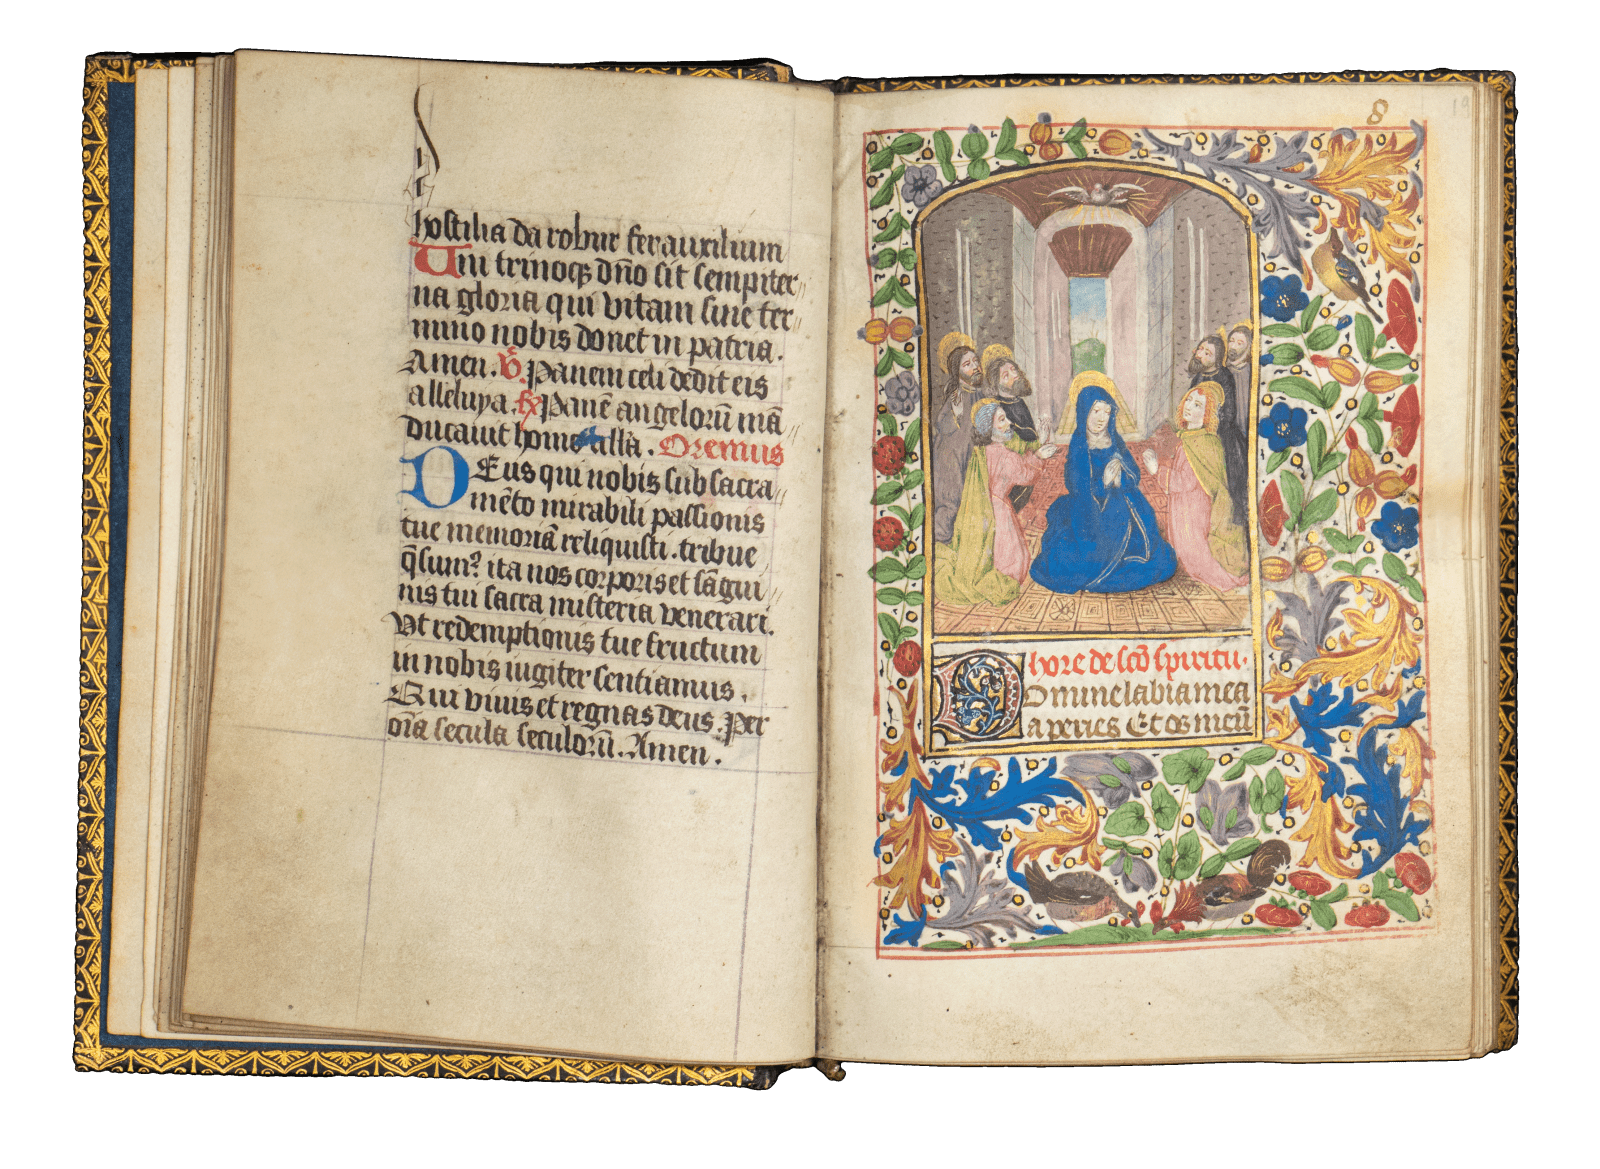 hostilia da robur fer auxilium
Uni trinoqȝ dño sit sempiter
na gloria qui vitam sine ter
mino nobis donet in patria.
Amen. V̄. Panem celi dedit eis
alleluya. R̄ Panē angelorū mā
ducauit homo alla. Oremus
DEus qui nobis sub sacra
mēto mirabili passionis
tue memoriā reliquisti. tribue
q̄sumꝰ ita nos corporis et sāgui
nis tui sacra misteria venerari.
Vt redemptionis tue fructum
in nobis iugiter sentiamus.
Qui viuis et regnas deus. Per
oīa secula seculorū. Amen.
8
19
hore de sc̄o spiritu.
Domine labia mea
aperies Et os meū